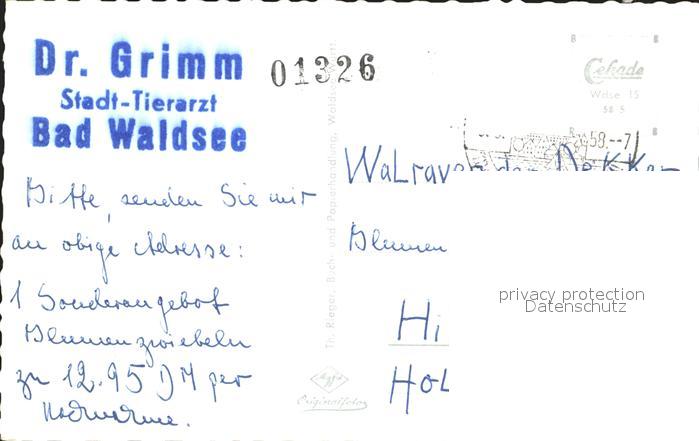 Dr. Grimm
Stadt-Tierarzt
Bad Waldsee
01326
Cekade
Wdse 15
58 5
58.--7
Bitte, senden Sie mir
an obige Adresse:
1 Sonderangebot
Blumenzwiebeln
zu 12.95 DM per
Nachnahme.
Th. Rieger, Buch- und Papierhandlung, Waldsee
Agfa
Originalfoto
Walraven
Blumen
Hi
Hol
privacy protection
Datenschutz